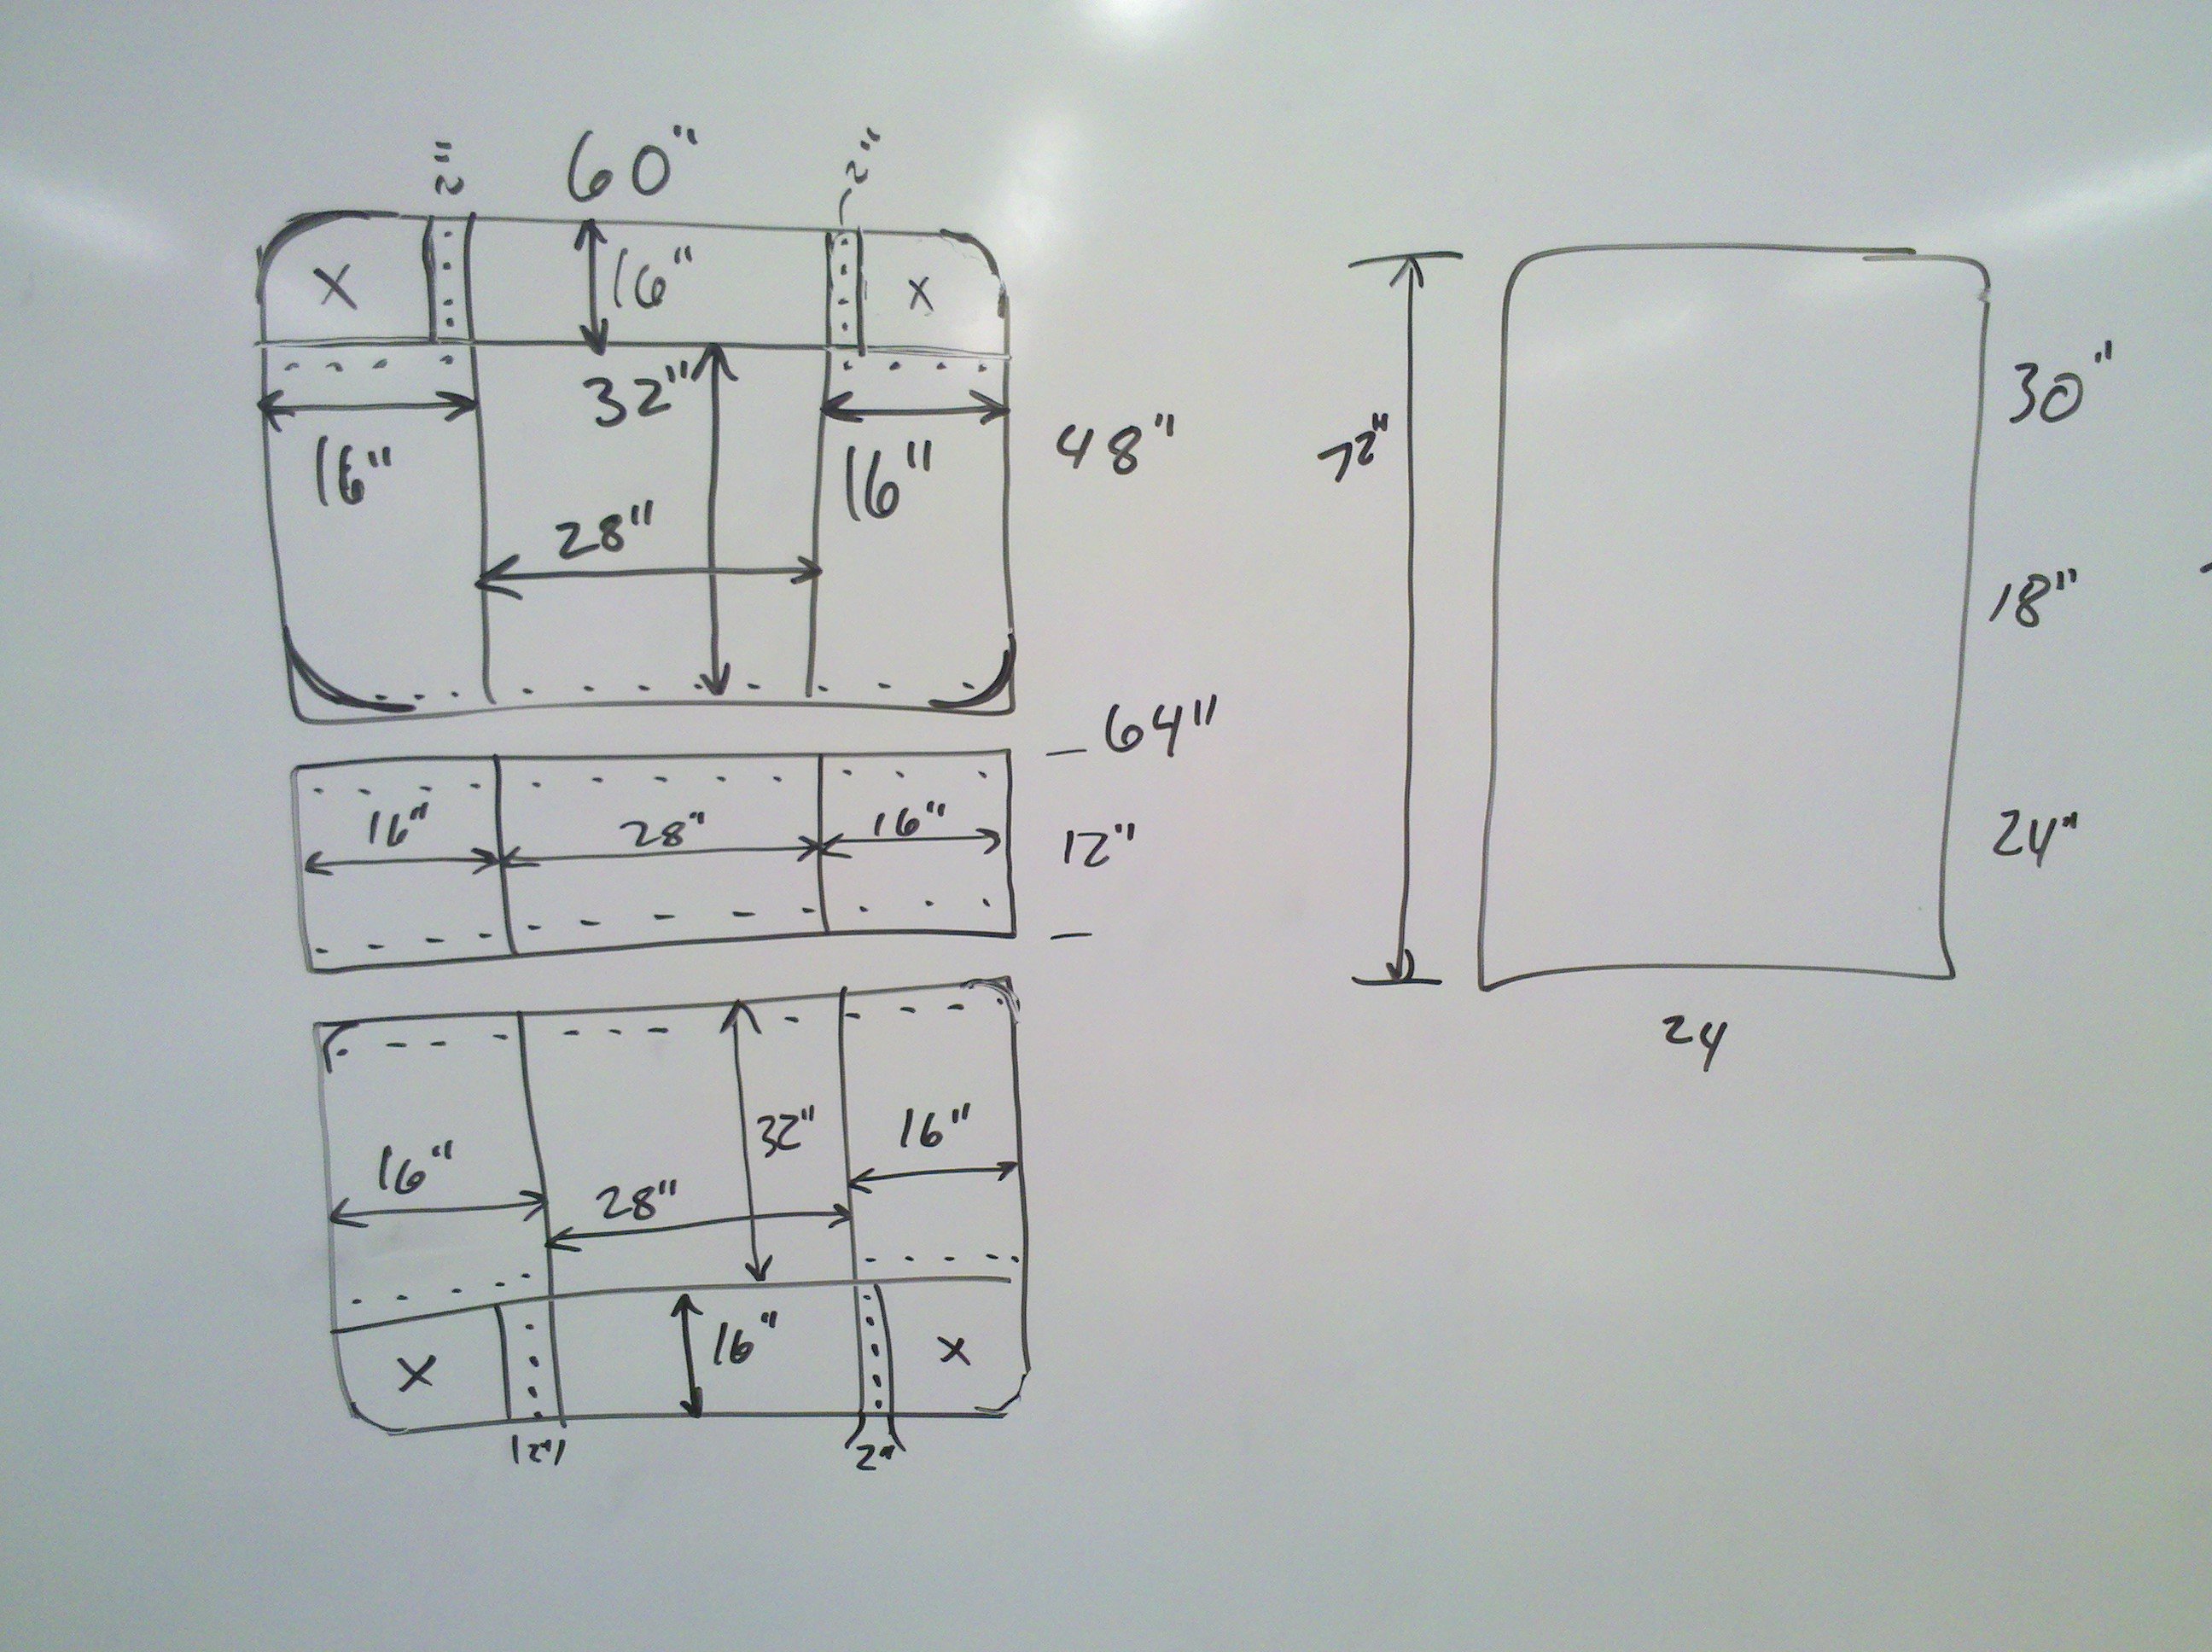 2" 60" 2"
X 16" X
32"
16" 16" 48"
28"
64"
16" 28" 16" 12"
32" 16"
16" 28"
X 16" X
2" 2"
30"
72"
18"
24"
24